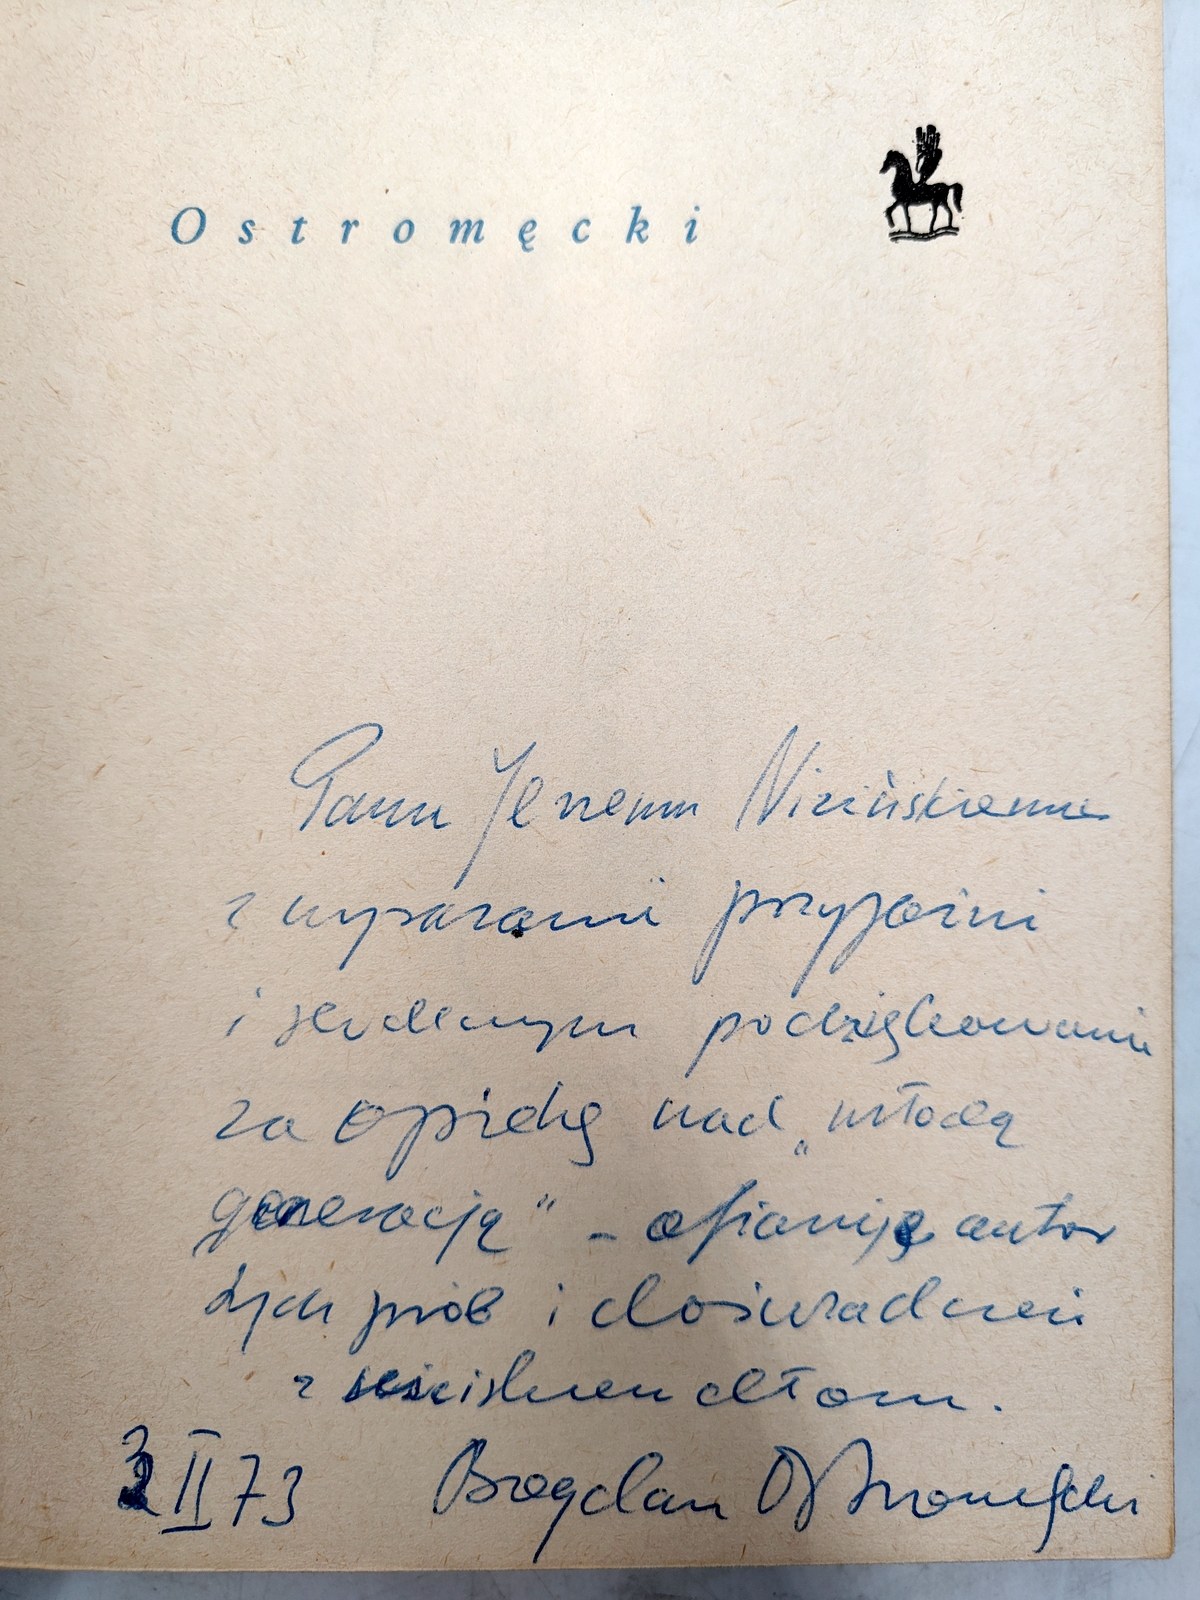 Ostromęcki
Panu Jerzemu Nizińskiemu
z wyrazami przyjaźni
i serdecznym podziękowaniem
za opiekę nad „młodą
generacją” - ofiaruję autor
tych prób i doświadczeń
z uściskiem dłoni.
II 73 Bogdan Ostromęcki